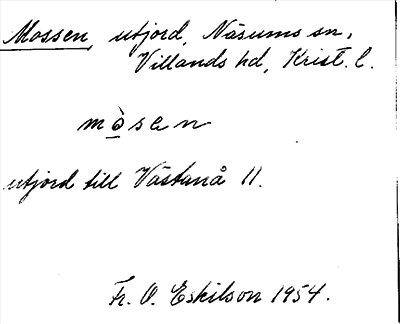 Mossen, utjord, Näsums sn,
Villands hd, Krist. l.
mò̱sen
utjord till Västanå 11.
Fr. O. Eskilson 1954.